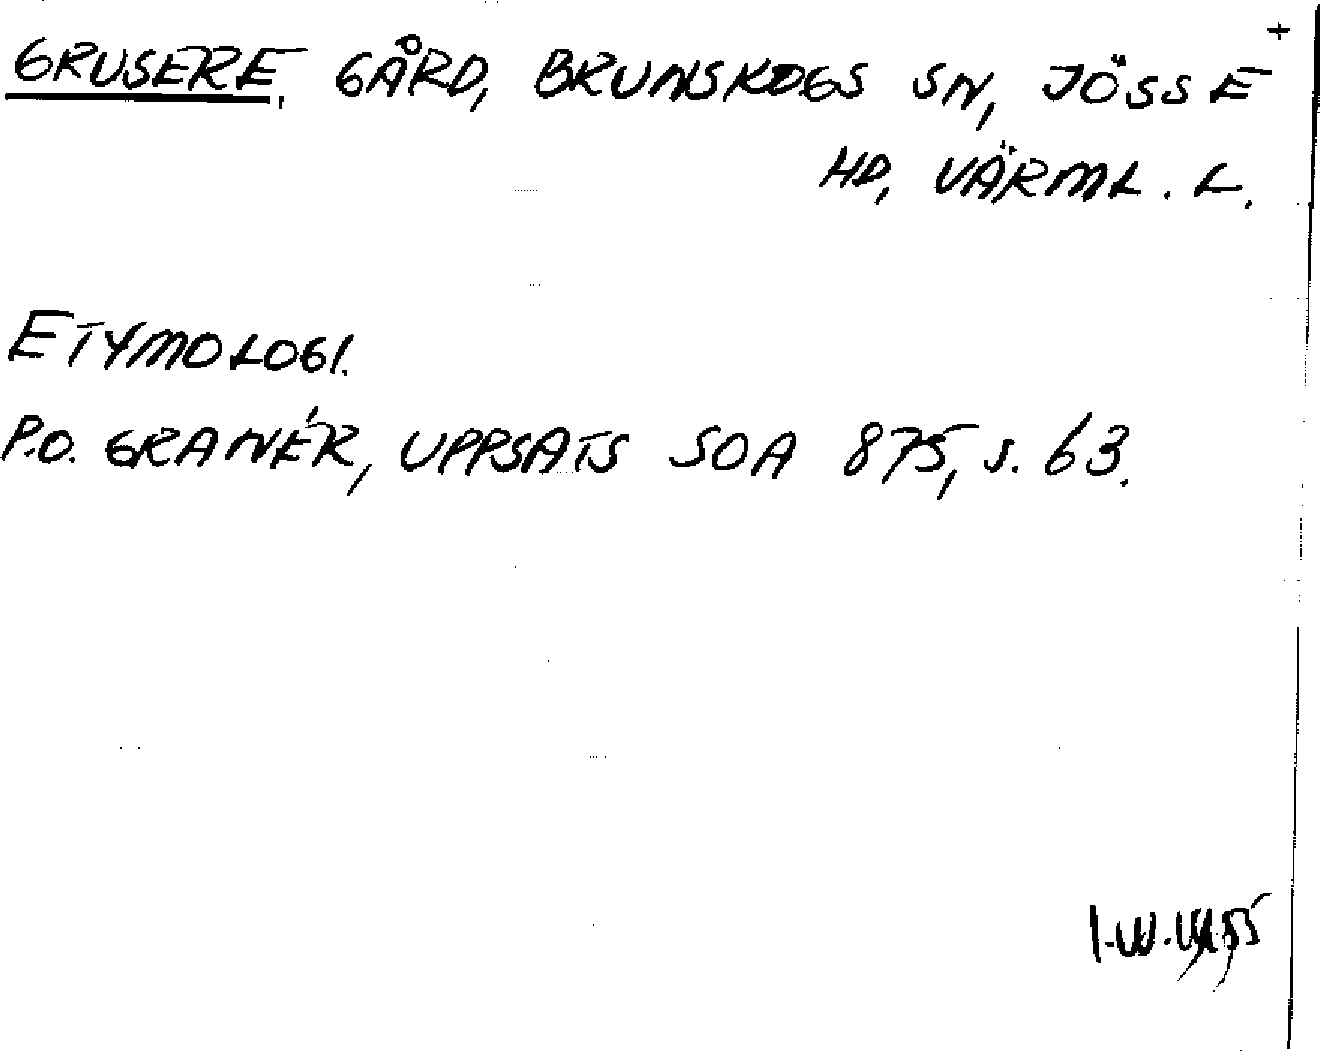 +
GRUSERE, GÅRD, BRUNSKOGS SN, JÖSSE
HD, VÄRML. L.
ETYMOLOGI.
P.O. GRANÉR, UPPSATS SOA 875, S. 63.
I.W.